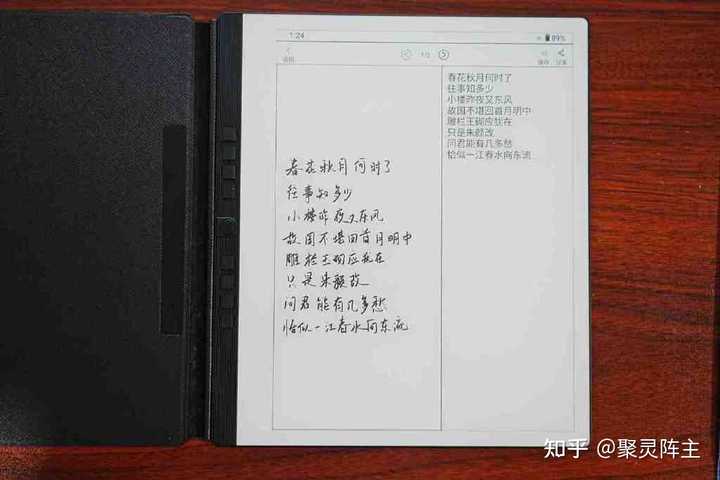 1:24
89%
1/2
春花秋月何时了
往事知多少
小楼昨夜又东风
故国不堪回首月明中
雕栏王砌应犹在
只是朱颜改
问君能有几多愁
恰似一江春水向东流
春花秋月何时了
往事知多少
小楼昨夜又东风
故国不堪回首月明中
雕栏王砌应犹在
只是朱颜改
问君能有几多愁
恰似一江春水向东流
知乎 @聚灵阵主